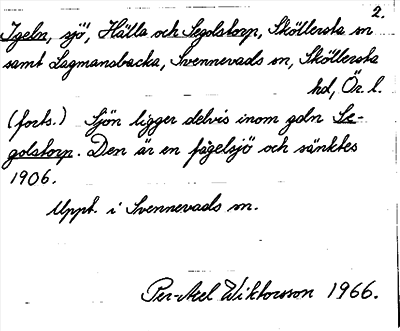 2.
Igeln, sjö, Hälla och Segolstorp, Sköllersta sn
samt Lagmansbacka, Svennevads sn, Sköllersta
hd, Ör. l.
(forts.) Sjön ligger delvis inom gdn Se-
golstorp. Den är en fågelsjö och sänktes
1906.
Uppt. i Svennevads sn.
Per-Axel Wiktorsson 1966.